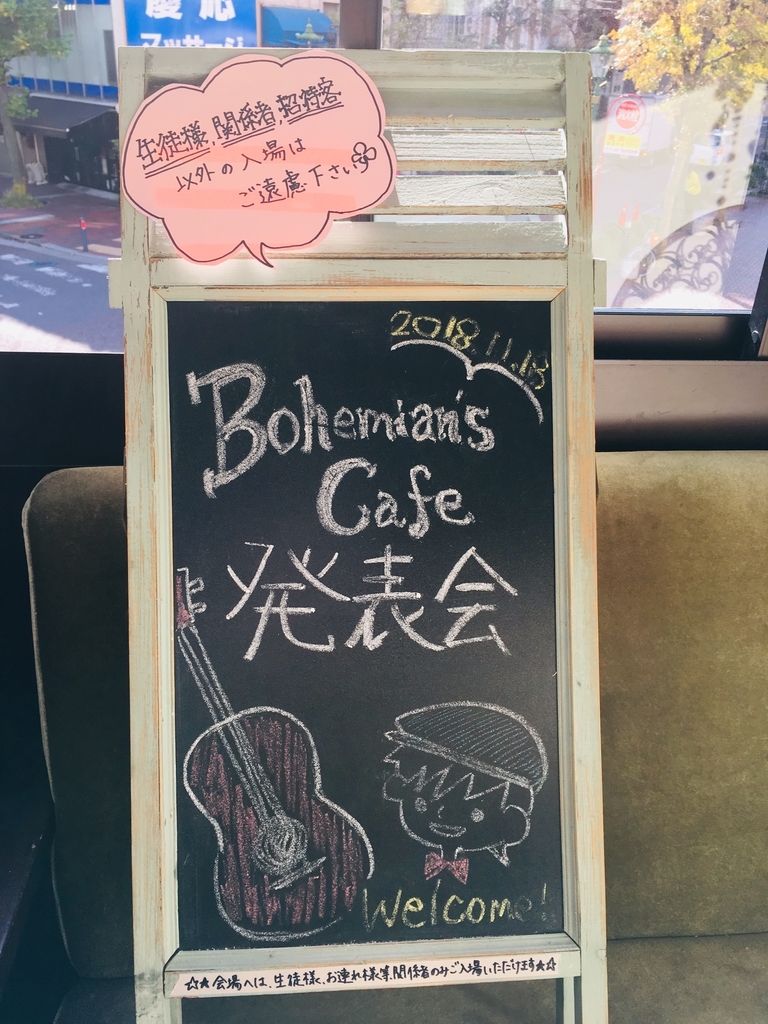 慶応
マッサージ
生徒様,関係者,招待客
以外の入場は
ご遠慮下さい
2018.11.18
Bohemian's
Cafe
発表会
Welcome!
☆★会場へは、生徒様、お連れ様等、関係者のみご入場いただけます★☆